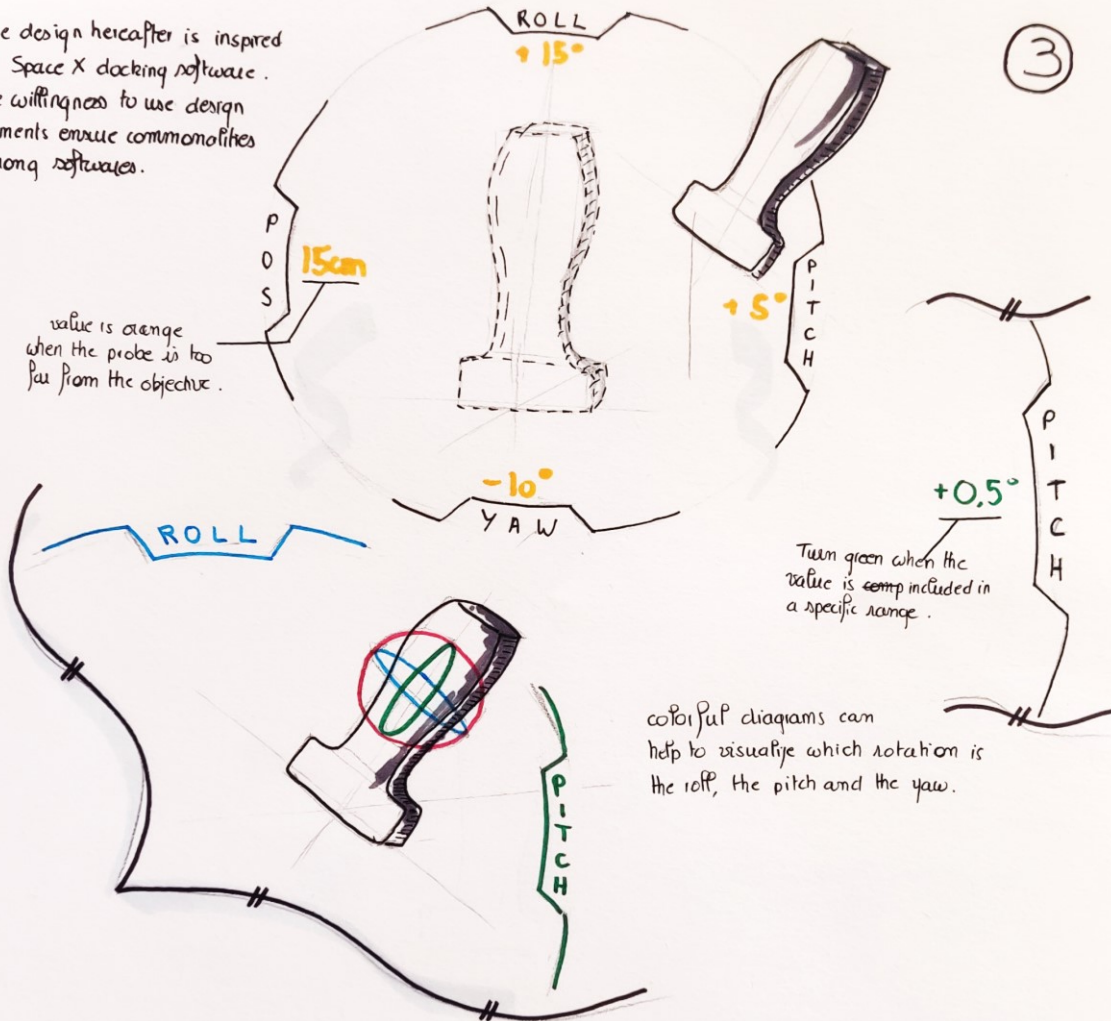 e design hereafter is inspired
Space X docking software.
e willingness to use design
ments ensue commonalities
nong softwares.
ROLL
+ 15°
3
POS
15cm
value is orange
when the probe is too
far from the objective.
+ 5°
PITCH
- 10°
YAW
+0,5°
PITCH
Turn green when the
value is comp included in
a specific range.
ROLL
PITCH
colorful diagrams can
help to visualize which rotation is
the roll, the pitch and the yaw.